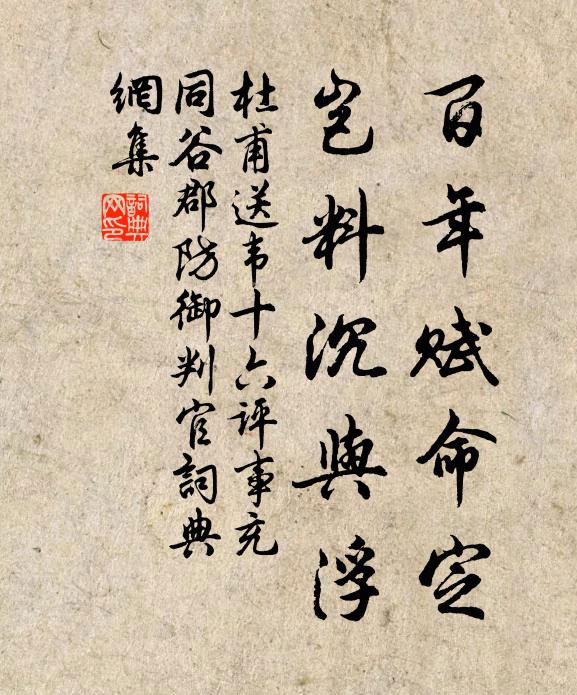 百年赋命定
岂料沉與浮
杜甫送韦十六评事充
同谷郡防御判官詞典
網集
詞典
网印